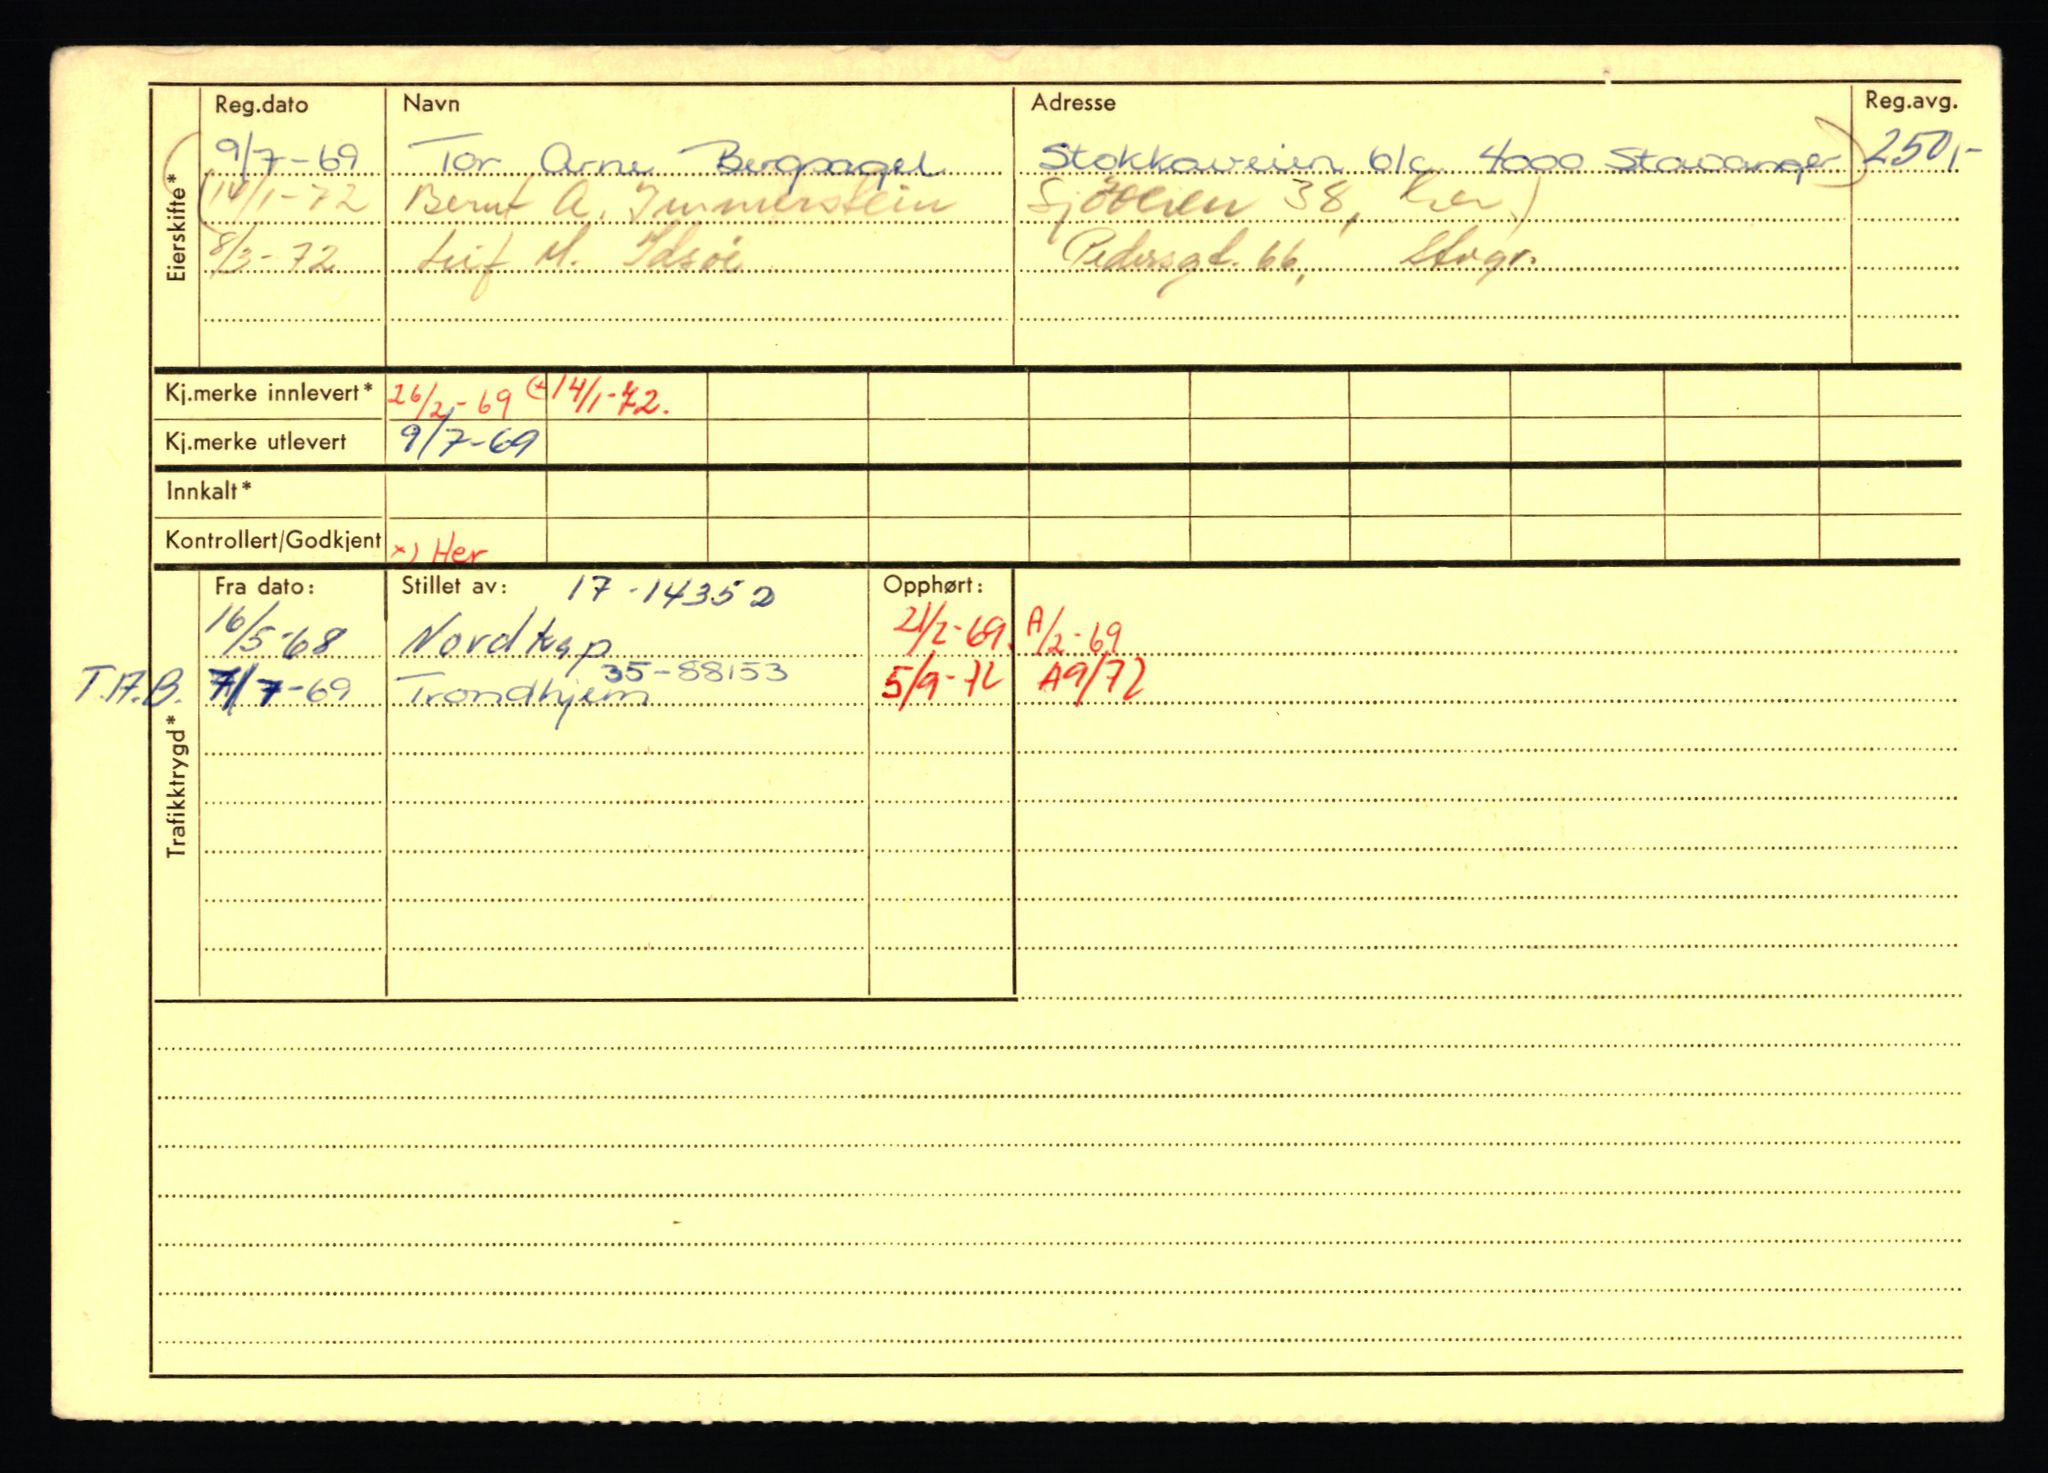 Reg.dato Navn Adresse Reg.avg.
9/7-69 Tor Arne Bergsagel Stokkaveien 61c 4000 Stavanger 250,-
(14/1-72 Bernt A. Immerstein Sjöveien 38, her)
8/3-72 Leif M. Idsöe Pedersgt. 66, Stvgr.
Eierskifte*
Kj.merke innlevert* 26/2-69 (* 14/1-72.
Kj.merke utlevert 9/7-69
Innkalt*
Kontrollert/Godkjent *) Her
Fra dato: Stillet av: 17-14352 Opphørt:
16/5-68 Nordkap 21/2-69. A/2-69
35-88153
T.A.B. 7/7-69 Trondhjem 5/9-72 A9/72
Trafikktrygd*